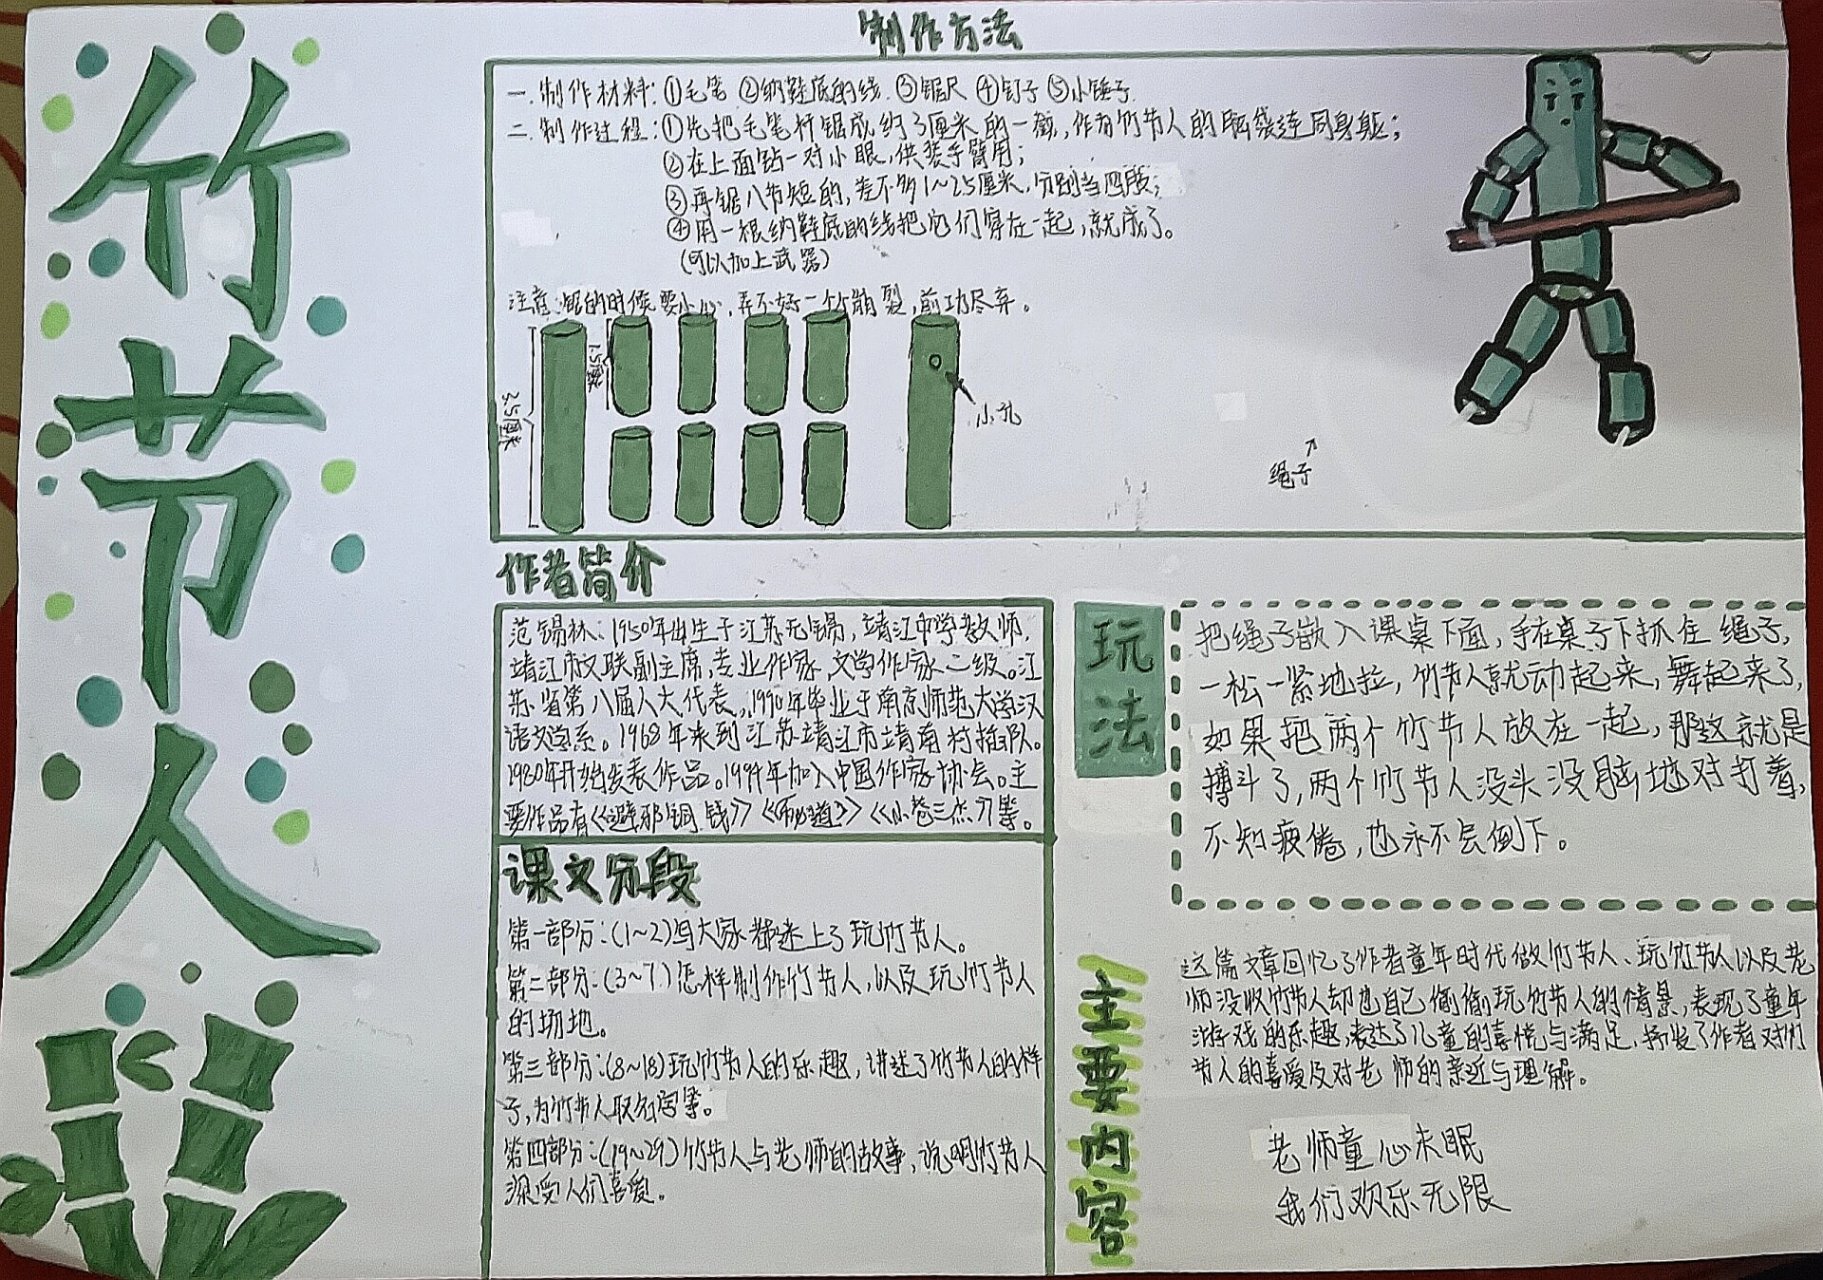 竹节人
制作方法
一.制作材料:①毛笔 ②纳鞋底的线 ③锯尺 ④钉子 ⑤小锤子
二.制作过程:①先把毛笔杆锯成约3厘米的一截,作为竹节人的脑袋连同身躯;
②在上面钻一对小眼,供装手臂用;
③再锯八节短的,差不多1~2.5厘米,分别当四肢;
④用一根纳鞋底的线把它们穿在一起,就成了。
(可以加上武器)
注意:锯的时候要小心,弄不好一个竹崩裂,前功尽弃。
3.5厘米
1.5厘米
小孔
绳子
作者简介
范锡林:1950年出生于江苏无锡,靖江中学教师,
靖江市文联副主席,专业作家,文学作家二级。江
苏省第八届人大代表,1990年毕业于南京师范大学汉
语文学系。1968年来到江苏靖江市靖南村插队。
1980年开始发表作品。1994年加入中国作家协会。主
要作品有《避邪铜钱》《师道》《小巷三杰》等。
课文分段
第一部分:(1~2)写大家都迷上了玩竹节人。
第二部分:(3~7)怎样制作竹节人,以及玩竹节人
的场地。
第三部分:(8~18)玩竹节人的乐趣,讲述了竹节人的样
子,为竹节人取名字等。
第四部分:(19~29)竹节人与老师的故事,说明竹节人
深受人们喜爱。
玩法
把绳子嵌入课桌下面,手在桌子下抓住绳子,
一松一紧地拉,竹节人就动起来,舞起来了,
如果把两个竹节人放在一起,那这就是
搏斗了,两个竹节人没头没脑地对打着,
不知疲倦,也永不会倒下。
主要内容
这篇文章回忆了作者童年时代做竹节人、玩竹节人以及老
师没收竹节人却也自己偷偷玩竹节人的情景,表现了童年
游戏的乐趣,表达了儿童的喜悦与满足,抒发了作者对竹
节人的喜爱及对老师的亲近与理解。
老师童心未眠
我们欢乐无限